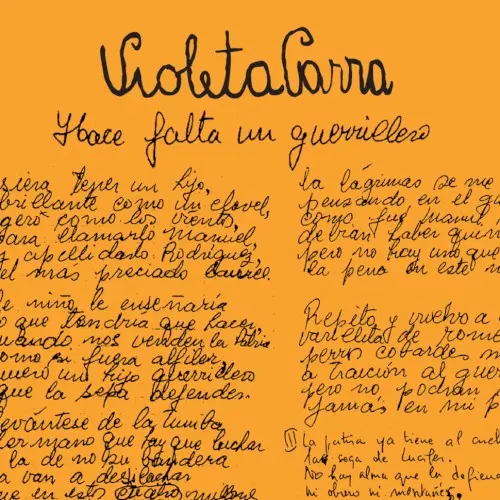 Violeta Parra
Hace falta un guerrillero
siera tener un hijo,
brillante como un clavel,
gero como los vientos,
para llamarlo Manuel,
y apellidarlo Rodríguez,
el mas preciado
De niño le enseñaria
o que tendria que hacer,
cuando nos venden la patria
como si fuera alfiler,
quiero un hijo guerrillero
que la sepa defender.
evántese de la tumba
hermano que hay que luchar
la de no su bandera
a van a
que en esto
la lágrimas se me
pensando en el gu
como fue Manuel
debían haber quem
pero no hay uno que
la pena en este m
Repito y vuelvo a
varillita de rome
perros cobardes m
a traición al gue
pero no podran
jamás en mi p
La patria ya tiene al cuel
la soga de Lucifer.
No hay alma que la defien
ni obrero ni montañés.